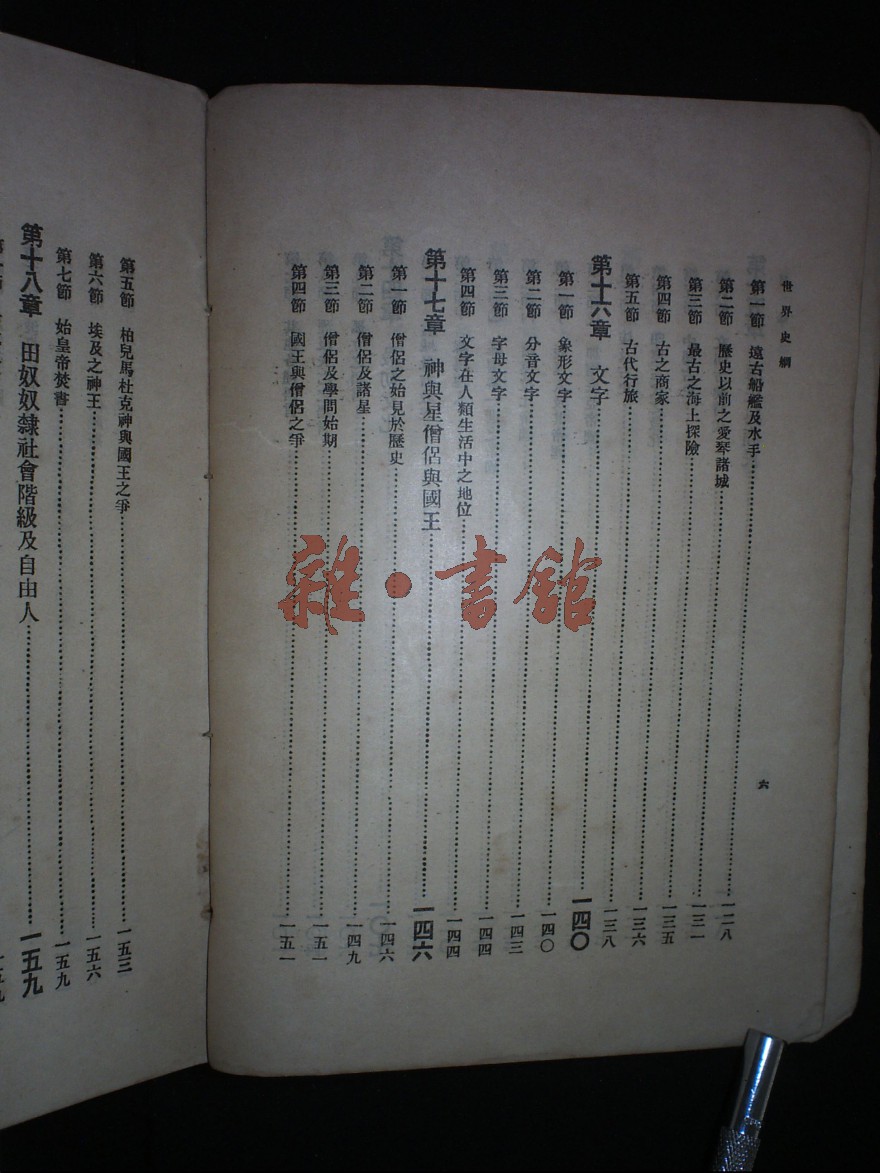 世界史綱
第一節 遠古船艦及水手 一二八
第二節 歷史以前之愛琴諸城 一三一
第三節 最古之海上探險 一三五
第四節 古之商家 一三六
第五節 古代行旅 一三八
第十六章 文字 一四〇
第一節 象形文字 一四〇
第二節 分音文字 一四三
第三節 字母文字 一四四
第四節 文字在人類生活中之地位 一四四
第十七章 神與星僧侶與國王 一四六
第一節 僧侶之始見於歷史 一四六
第二節 僧侶及諸星 一四九
第三節 僧侶及學問始期 一五一
第四節 國王與僧侶之爭 一五一
六
第五節 柏兒馬杜克神與國王之爭 一五三
第六節 埃及之神王 一五六
第七節 始皇帝焚書 一五九
第十八章 田奴奴隸社會階級及自由人 一五九
雜·書館